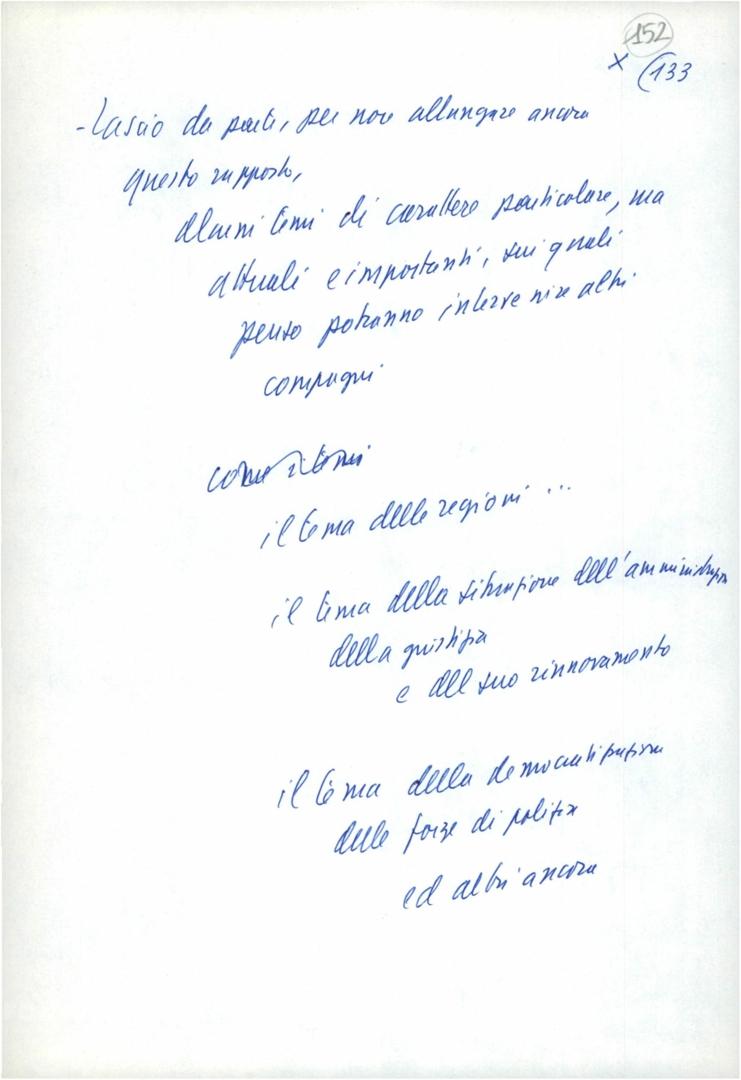 152
x (133
- Lascio da parte, per non allungare ancora
questo rapporto,
alcuni temi di carattere particolare, ma
attuali e importanti, sui quali
penso potranno intervenire altri
compagni
come i temi
il tema delle regioni ...
il tema della situazione dell'amministrazione
della giustizia
e del suo rinnovamento
il tema della democratizzazione
delle forze di polizia
ed altri ancora